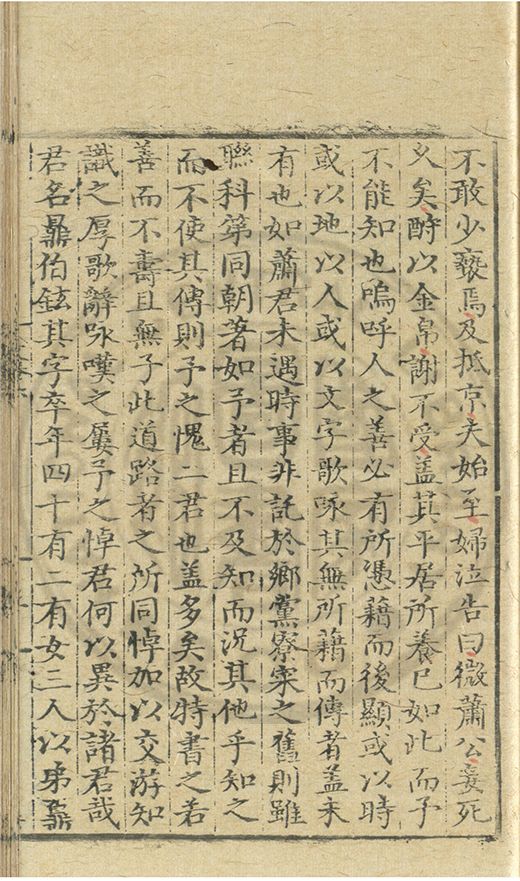 不敢少褻焉及抵京夫始至婦泣告曰微蕭公妾死
乆矣酧以金帛謝不受盖其平居所養已如此而予
不能知也嗚呼人之善必有所憑藉而後顯或以時
或以地以人或以文字歌咏其無所藉而傳者盖未
有也如蕭君未遇時事非託於鄉黨寮寀之舊則雖
聮科第同朝著如予者且不及知而況其他乎知之
而不使其傳則予之愧二君也盖多矣故特書之若
善而不壽且無子此道路者之所同悼加以交游知
識之厚歌辭咏嘆之屢予之悼君何以異於諸君哉
君名鼎伯鉉其字卒年四十有二有女三人以弟鼐